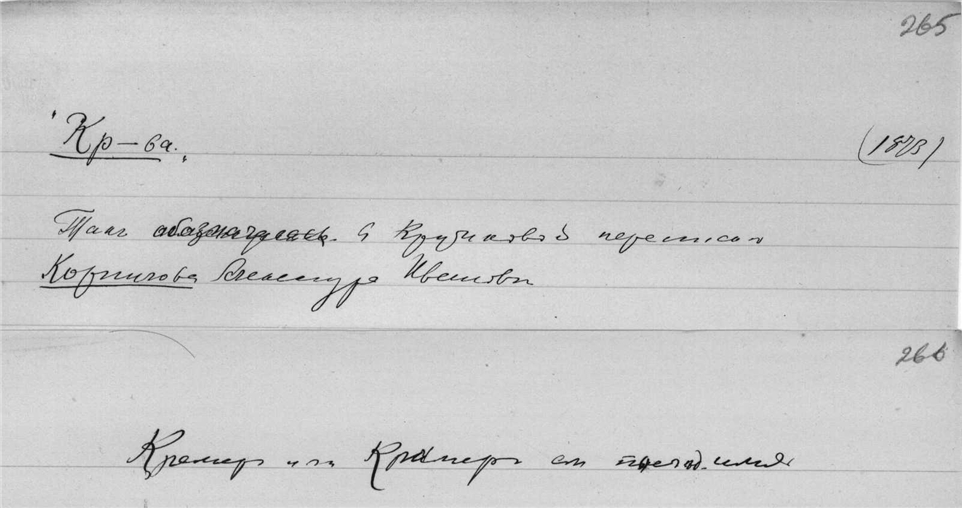 265
"Кр–ва." (1873)
Так обозначалась в кружковой переписке
Корнилова Александра Ивановна
266
Кремер или Крамер см